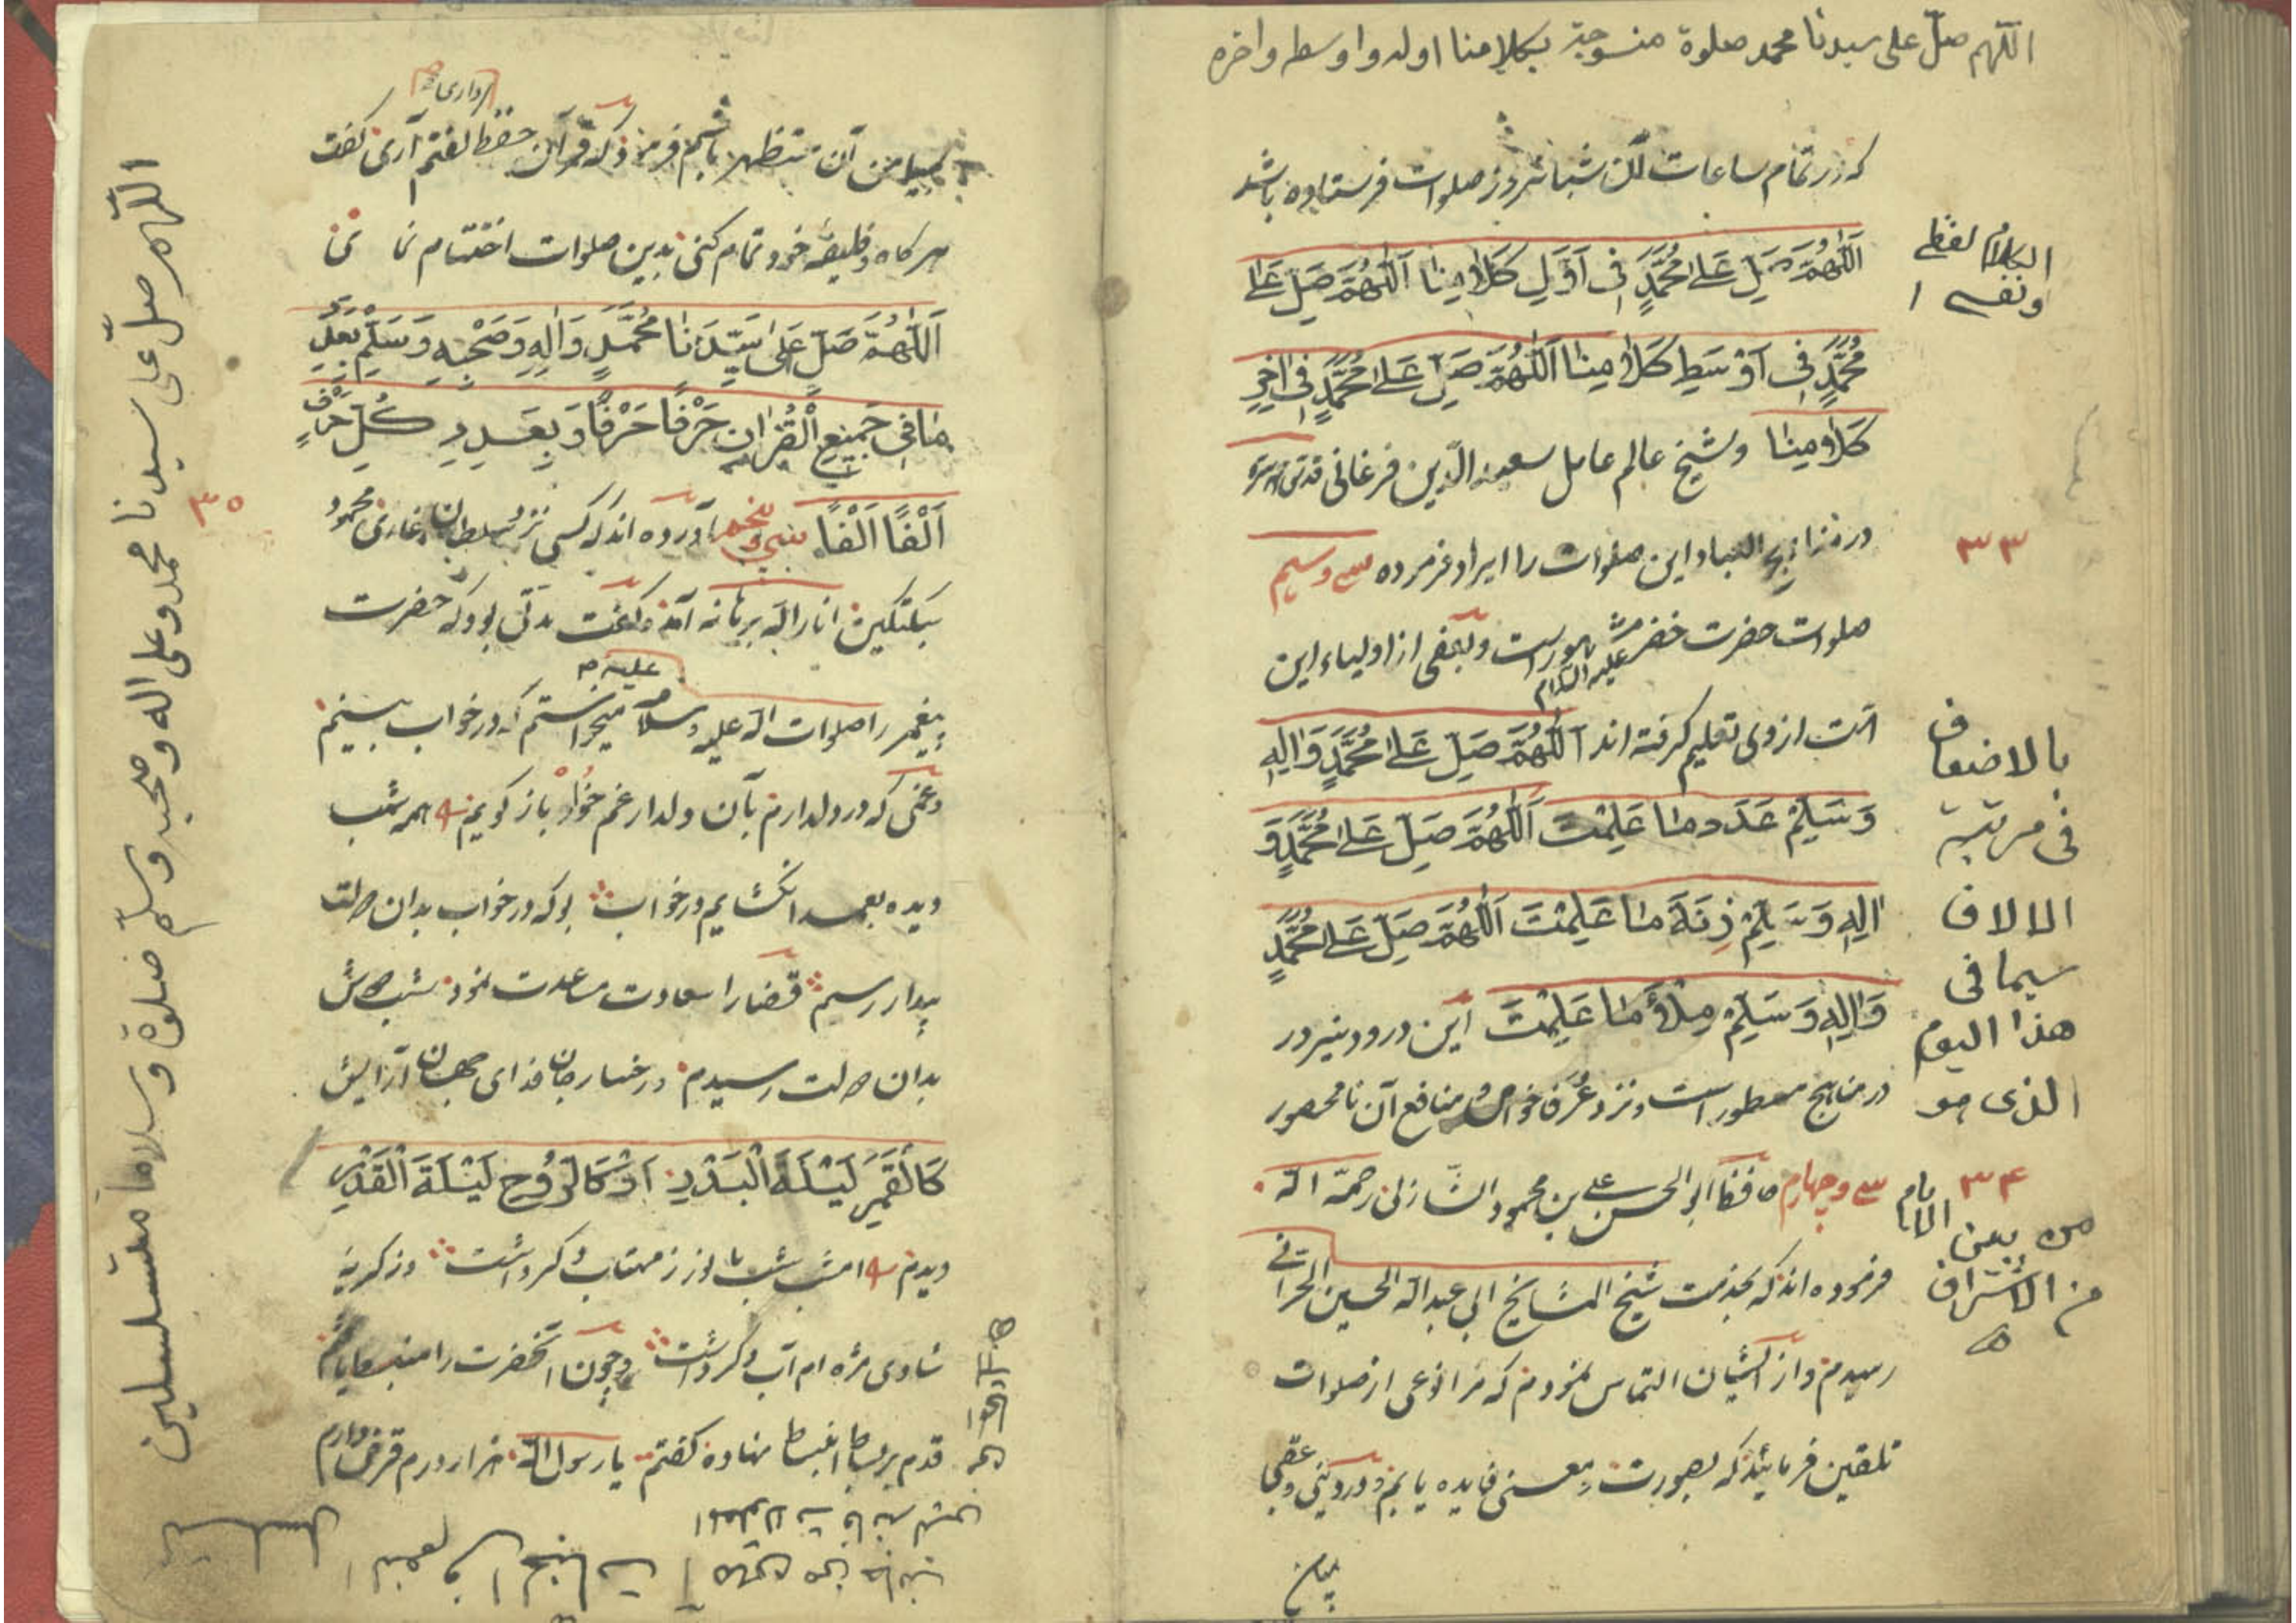 اللّهم صلّ على سيدنا محمد صلوة منسوجة بكلامنا اوله واوسطه واخره
که در تمام ساعات آن شبانروز صلوات فرستاده باشد
اَللّٰهُمَّ صَلِّ عَلیٰ مُحَمَّدٍ فی اَوَّلِ کَلَامِنَا اَللّٰهُمَّ صَلِّ عَلیٰ
مُحَمَّدٍ فی اَوْسَطِ کَلَامِنَا اَللّٰهُمَّ صَلِّ عَلیٰ مُحَمَّدٍ فی اٰخِرِ
کَلَامِنَا وشیخ عالم عامل سعید الدّین فرغانی قدس سره
در مناهج العباد این صلوات را ایراد فرمرده سی وسیم
صلوات حضرت خضر علیه السلام مشهور است وبعضی از اولیاء این
امت از وی تعلیم کرفته اند اَللّٰهُمَّ صَلِّ عَلیٰ مُحَمَّدٍ وَاٰلِهِ
وَسَلِّمْ عَدَدَ مَا عَلِمْتَ اَللّٰهُمَّ صَلِّ عَلیٰ مُحَمَّدٍ وَ
اٰلِهِ وَسَلِّمْ زِنَةَ مَا عَلِمْتَ اَللّٰهُمَّ صَلِّ عَلیٰ مُحَمَّدٍ
وَاٰلِهِ وَسَلِّمْ مِلْأَ مَا عَلِمْتَ این درود نیز در
در مناهج مسطور است ونزد عُرَفا خواص و منافع آن نامحصور
سی وچهارم ابو الحسن علی بن محمود الشاذلی رحمة الله
فرموده اند که بخدمت شیخ المشایخ ابی عبدالله الحسین الحرانی
رسیدم واز ایشان التماس نمودم که مرا نوعی از صلوات
تلقین فرمائید که بصورت ومعنی فایده یابم ودر دینی وعقبی
بمن
الكلام لفظی
ونفسی ١
٣٣
بالاضعاف
فی مرتبة
الالاف
سیما فی
هذا الیوم
الذی هو
٣۴
من بین الایام
من الاشراف
بمیامن آن مستظهر باشم فرمود که قرآن حفظ داری گفتم آری گفت
هرکاه وظیفهٔ خود تمام کنی بدین صلوات اختتام نمائی
اَللّٰهُمَّ صَلِّ عَلیٰ سَیِّدِنَا مُحَمَّدٍ وَاٰلِهِ وَصَحْبِهِ وَسَلِّمْ بِعَدَدِ
مَا فِی جَمِیعِ الْقُرْاٰنِ حَرْفًا حَرْفًا وَبِعَدَدِ کُلِّ حَرْفٍ
اَلْفًا اَلْفًا سی وپنجم آورده اند که کسی نزد سلطان غازی محمود
سَبُکتکین انار الله برهانه آمد وکفت مدتی بود که حضرت
پیغمبر را صلوات الله علیه وسلامه علیه میخواستم که در خواب ببینم
وغمی که در دل دارم بآن دلدار غمخوار باز کویم همه شب
دیده بعمدا نکشایم در خواب بوکه در خواب بدان دولت
بیدار رسم قضارا سعادت مساعدت نمود شب دوش
بدان دولت رسیدم ورخسار جان فزای جهان آرایش
کَالْقَمَرِ لَیْلَةَ الْبَدْرِ اَوْ کَالرُّوحِ لَیْلَةَ الْقَدْرِ
دیدم امشب شب ما نور ز مهتاب دکر داشت وز کریه
شادی مژه ام آب دکر داشت وچون آنحضرت را منبسط یافتم
قدم بر بساط انبساط نهاده کفتم یا رسول الله هزار درم قرض دارم
٣٥
اللّهم صلّ على سيدنا محمد وعلى اله وصحبه وسلّم صلوة وسلاما متسلسلين